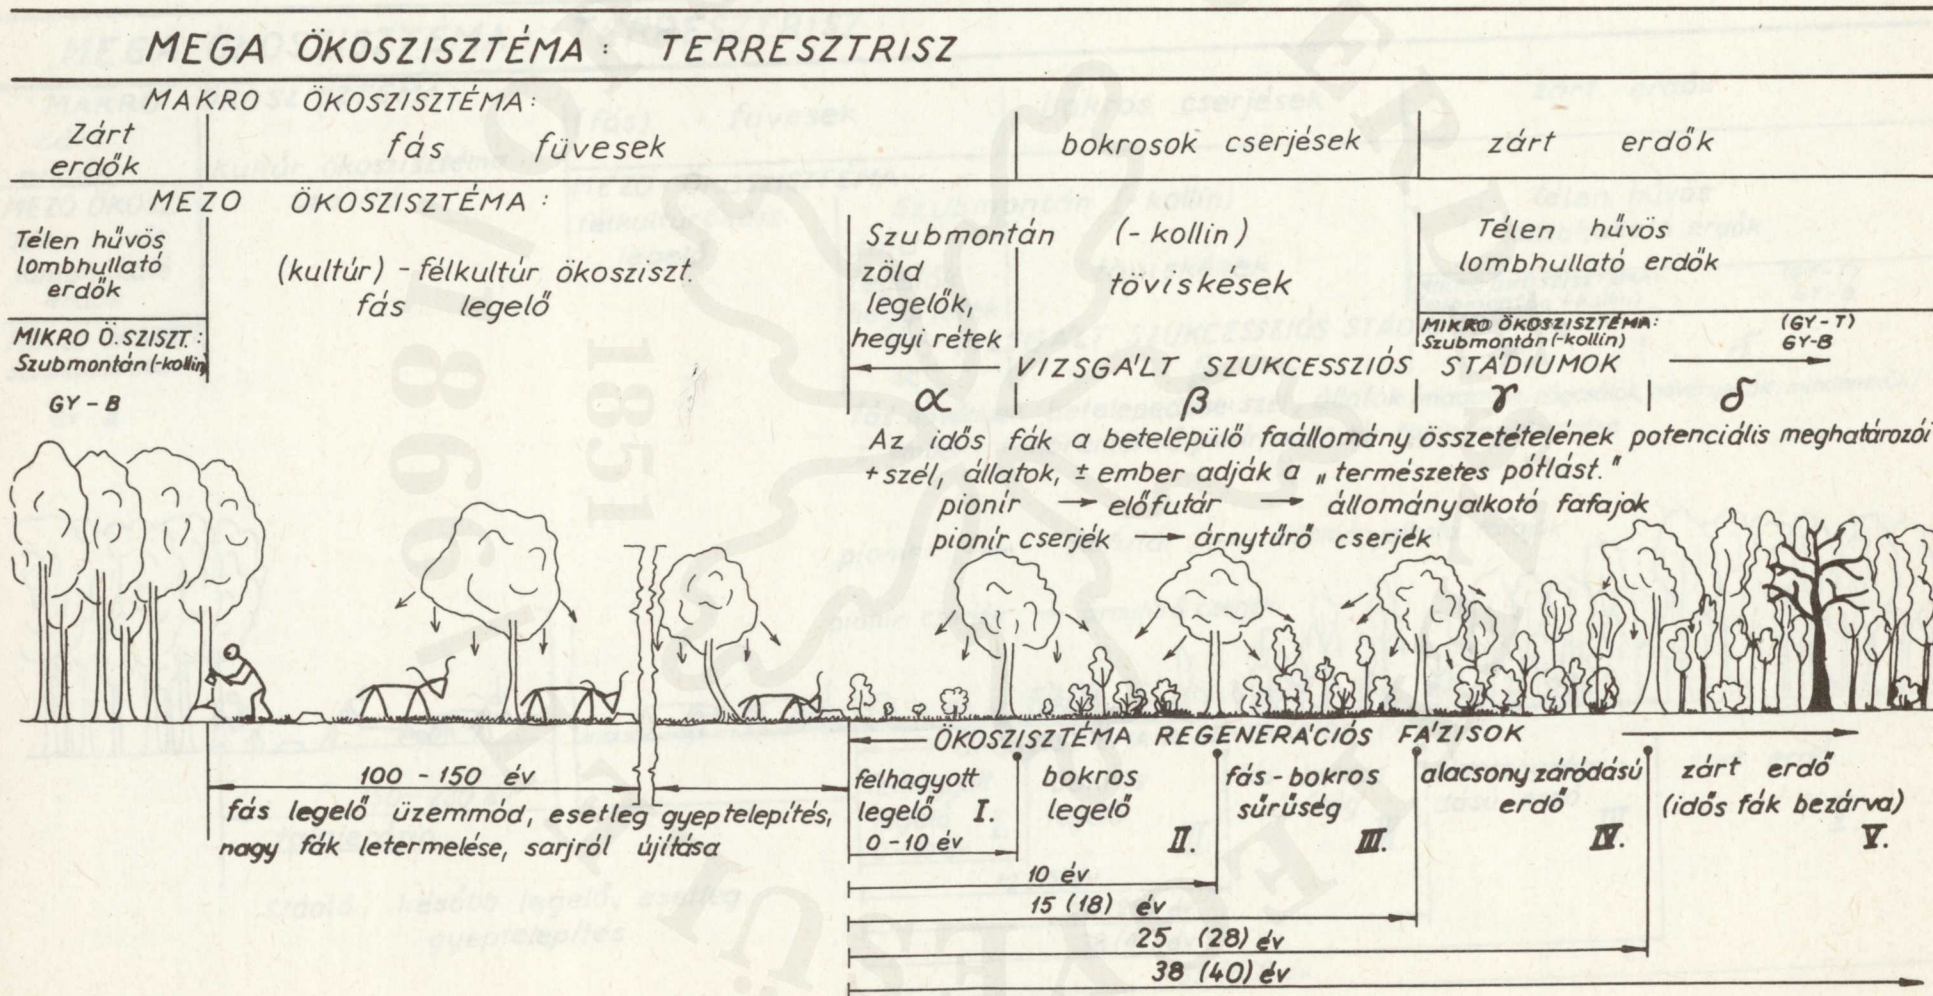 MEGA ÖKOSZISZTÉMA: TERRESZTRISZ
MAKRO ÖKOSZISZTÉMA:
Zárt
erdők
fás füvesek
bokrosok cserjések
zárt erdők
MEZO ÖKOSZISZTÉMA:
Télen hűvös
lombhullató
erdők
(kultúr) - félkultúr ökosziszt.
fás legelő
Szubmontán (-kollin)
zöld
legelők,
hegyi rétek
töviskések
Télen hűvös
lombhullató erdők
MIKRO Ö.SZISZT.:
Szubmontán (-kollin)
GY - B
MIKRO ÖKOSZISZTÉMA: (GY-T)
Szubmontán (-kollin) GY-B
VIZSGÁLT SZUKCESSZIÓS STÁDIUMOK
α β γ δ
Az idős fák a betelepülő faállomány összetételének potenciális meghatározói
+ szél, állatok, ± ember adják a „természetes pótlást."
pionír → előfutár → állományalkotó fafajok
pionír cserjék → árnytűrő cserjék
1851
1866
ÖKOSZISZTÉMA REGENERÁCIÓS FÁZISOK
100 - 150 év
fás legelő üzemmód, esetleg gyeptelepítés,
nagy fák letermelése, sarjról újítása
felhagyott
legelő I.
0 - 10 év
bokros
legelő
II.
fás - bokros
sűrűség
III.
alacsony záródású
erdő
IV.
zárt erdő
(idős fák bezárva)
V.
10 év
15 (18) év
25 (28) év
38 (40) év